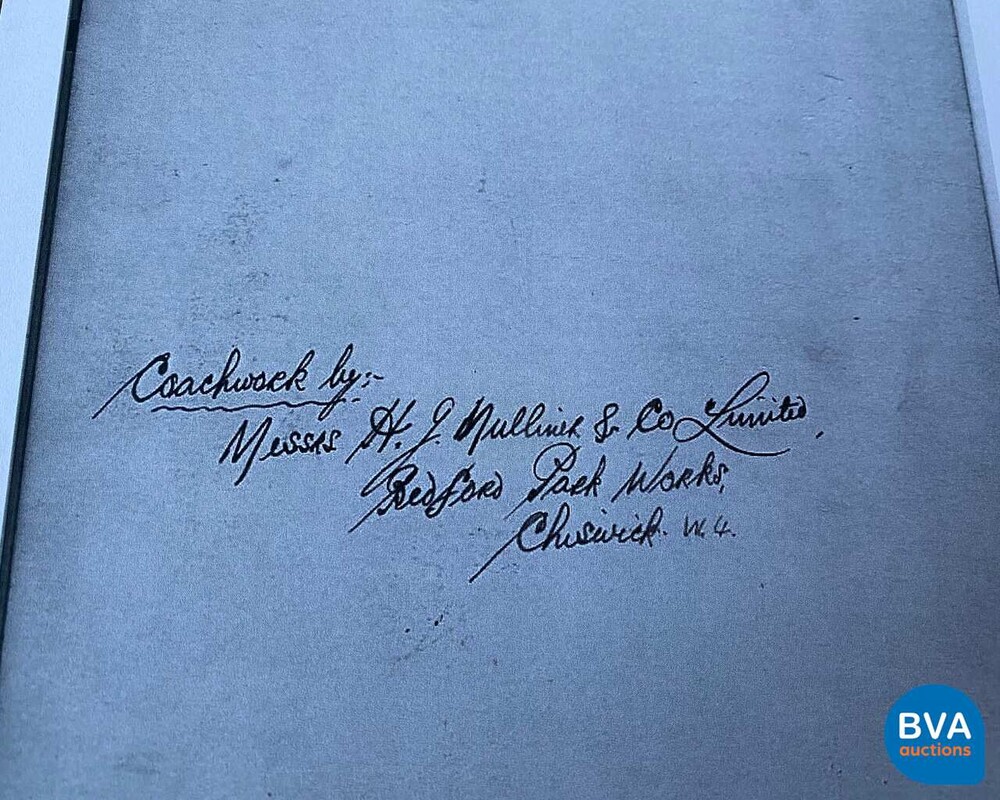 Coachwork by:-
Messrs H. J. Mulliner & Co Limited,
Bedford Park Works,
Chiswick. W.4.
BVA
auctions